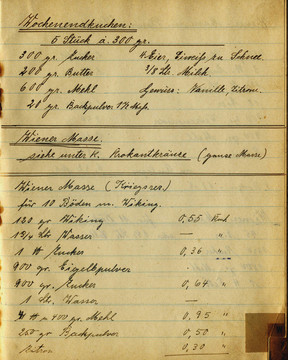 Wochenendkuchen:
5 Stück á. 300 gr.
300 gr. Zucker 4 Eier, Eiweiss zu Schnee.
200 gr. Butter 3/8 Ltr. Milch.
600 gr. Mehl Gewürz: Vanille, Zitron.
20 gr. Backpulver
Wiener Masse.
siehe unter K. Krokantkränze (ganze Masse)
Wiener Masse (Kriegsrez.)
für 10 Böden m. Wiking.
130 gr. Wiking 0,55
1 3/4 Ltr. Wasser — "
1 ℔ Zucker 0,36 "
200 gr. Eigelbpulver
900 gr. Zucker 0,64 "
1 Ltr. Wasser — "
400 gr. Mehl 0,95 "
250 gr. Backpulver 0,50 "
0,30 "